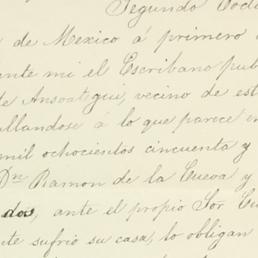 Segundo
de Mexico á primero
ente mi el Escribano pub
de Ansoategui, vecino de est
allandose á lo que parece en
mil ochocientos cincuenta y
Dn Ramon de la Cueva y
dos, ante el propio Sor Cu
te sufrio su casa, lo obligan